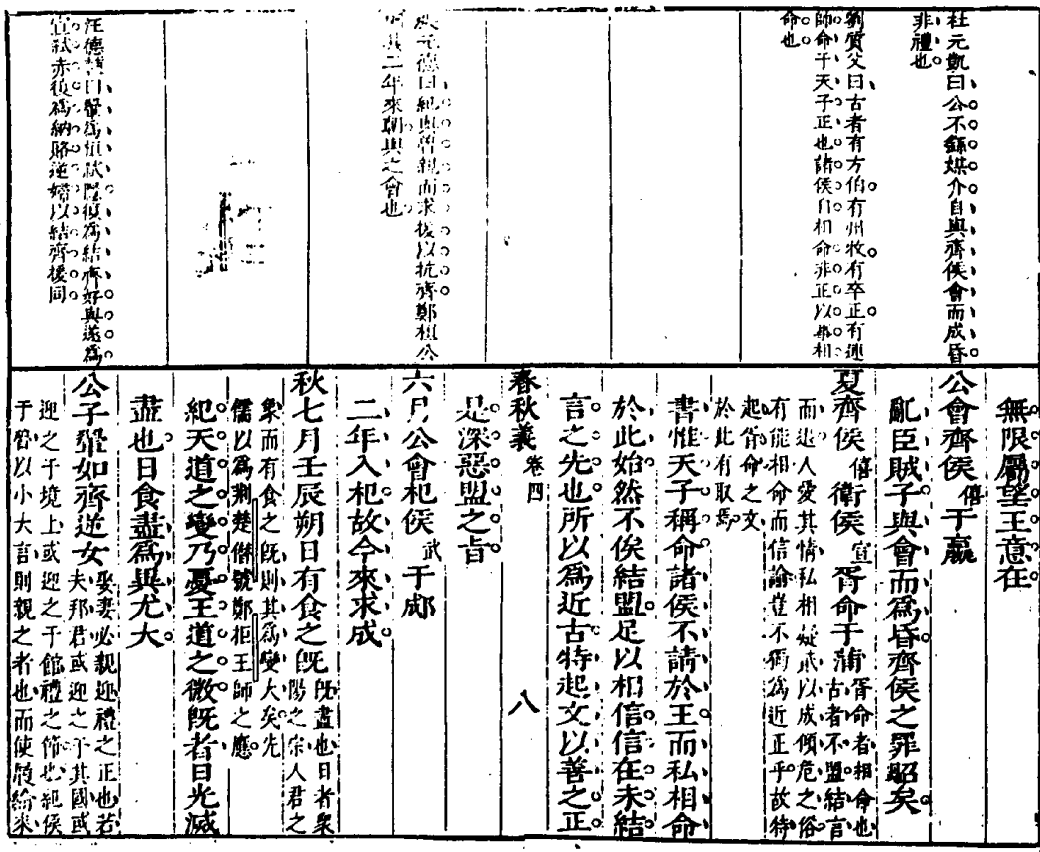 杜元凱曰公不繇媒介自與齊侯會而成昏
非禮也
劉質父曰古者有方伯有州牧有卒正有連
師命于天子正也諸侯自相命非正以
命也
元德曰紀與魯親而求援以抗齊鄭桓公
二年來朝與之會也
汪德曰翬爲桓弒隱後爲結齊好與遂爲
宣弒赤後爲納賂逆婦以結齊援同
無限屬望王意在
公會齊侯僖于嬴
亂臣賊子與會而爲昏齊侯之罪昭矣
夏齊侯僖衛侯宣胥命于蒲胥命者相命也
古者不盟結言
而退人愛其情私相疑貳以成傾危之俗
有能相命而信諭豈不獨爲近正乎故特
起胥命之文
於此有取焉
書惟天子稱命諸侯不請於王而私相命
於此始然不俟結盟足以相信信在未結
言之先也所以爲近古特起文以善之正
春秋義 卷四 八
是深惡盟之旨
六月公會杞侯武于郕
二年入杞故今來求成
秋七月壬辰朔日有食之旣旣盡也日者衆
陽之宗人君之
象而有食之旣則其爲變大矣先
儒以爲荆楚僭號鄭拒王師之應
紀天道之變乃憂王道之微旣者日光滅
盡也日食盡爲異尤大
公子翬如齊逆女娶妻必親迎禮之正也若
夫邦君或迎之于其國或
迎之于境上或迎之于館禮之節也紀侯
于魯以小大言則親之者也而使履緰來